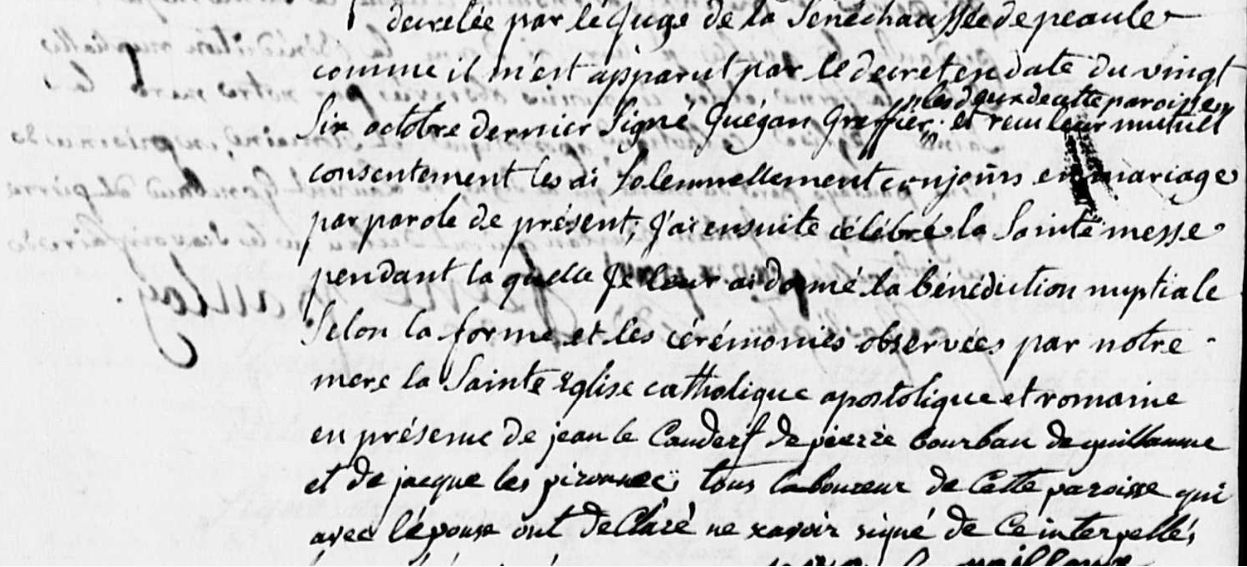 decretée par le juge de la Sénéchaussée de peaule
comme il m'est apparut par le decret en date du vingt
les deux de cette paroisse
Six octobre dernier Signé Guégan Greffier. et reçu leur mutuel
consentement les ai Solemnellement conjoins en mariage
par parole de présent; J'ai ensuite célébré la Sainte messe
pendant la quelle Je leur ai donné la bénédiction nuptiale
Selon la forme et les cérémonies observées par notre
mere la Sainte Eglise catholique apostolique et romaine
en présence de jean le de pierre bourban de guillaume
et de jacque les tous laboureur de Cette paroisse qui
avec l'épouse ont declaré ne savoir signé de ce interpellés